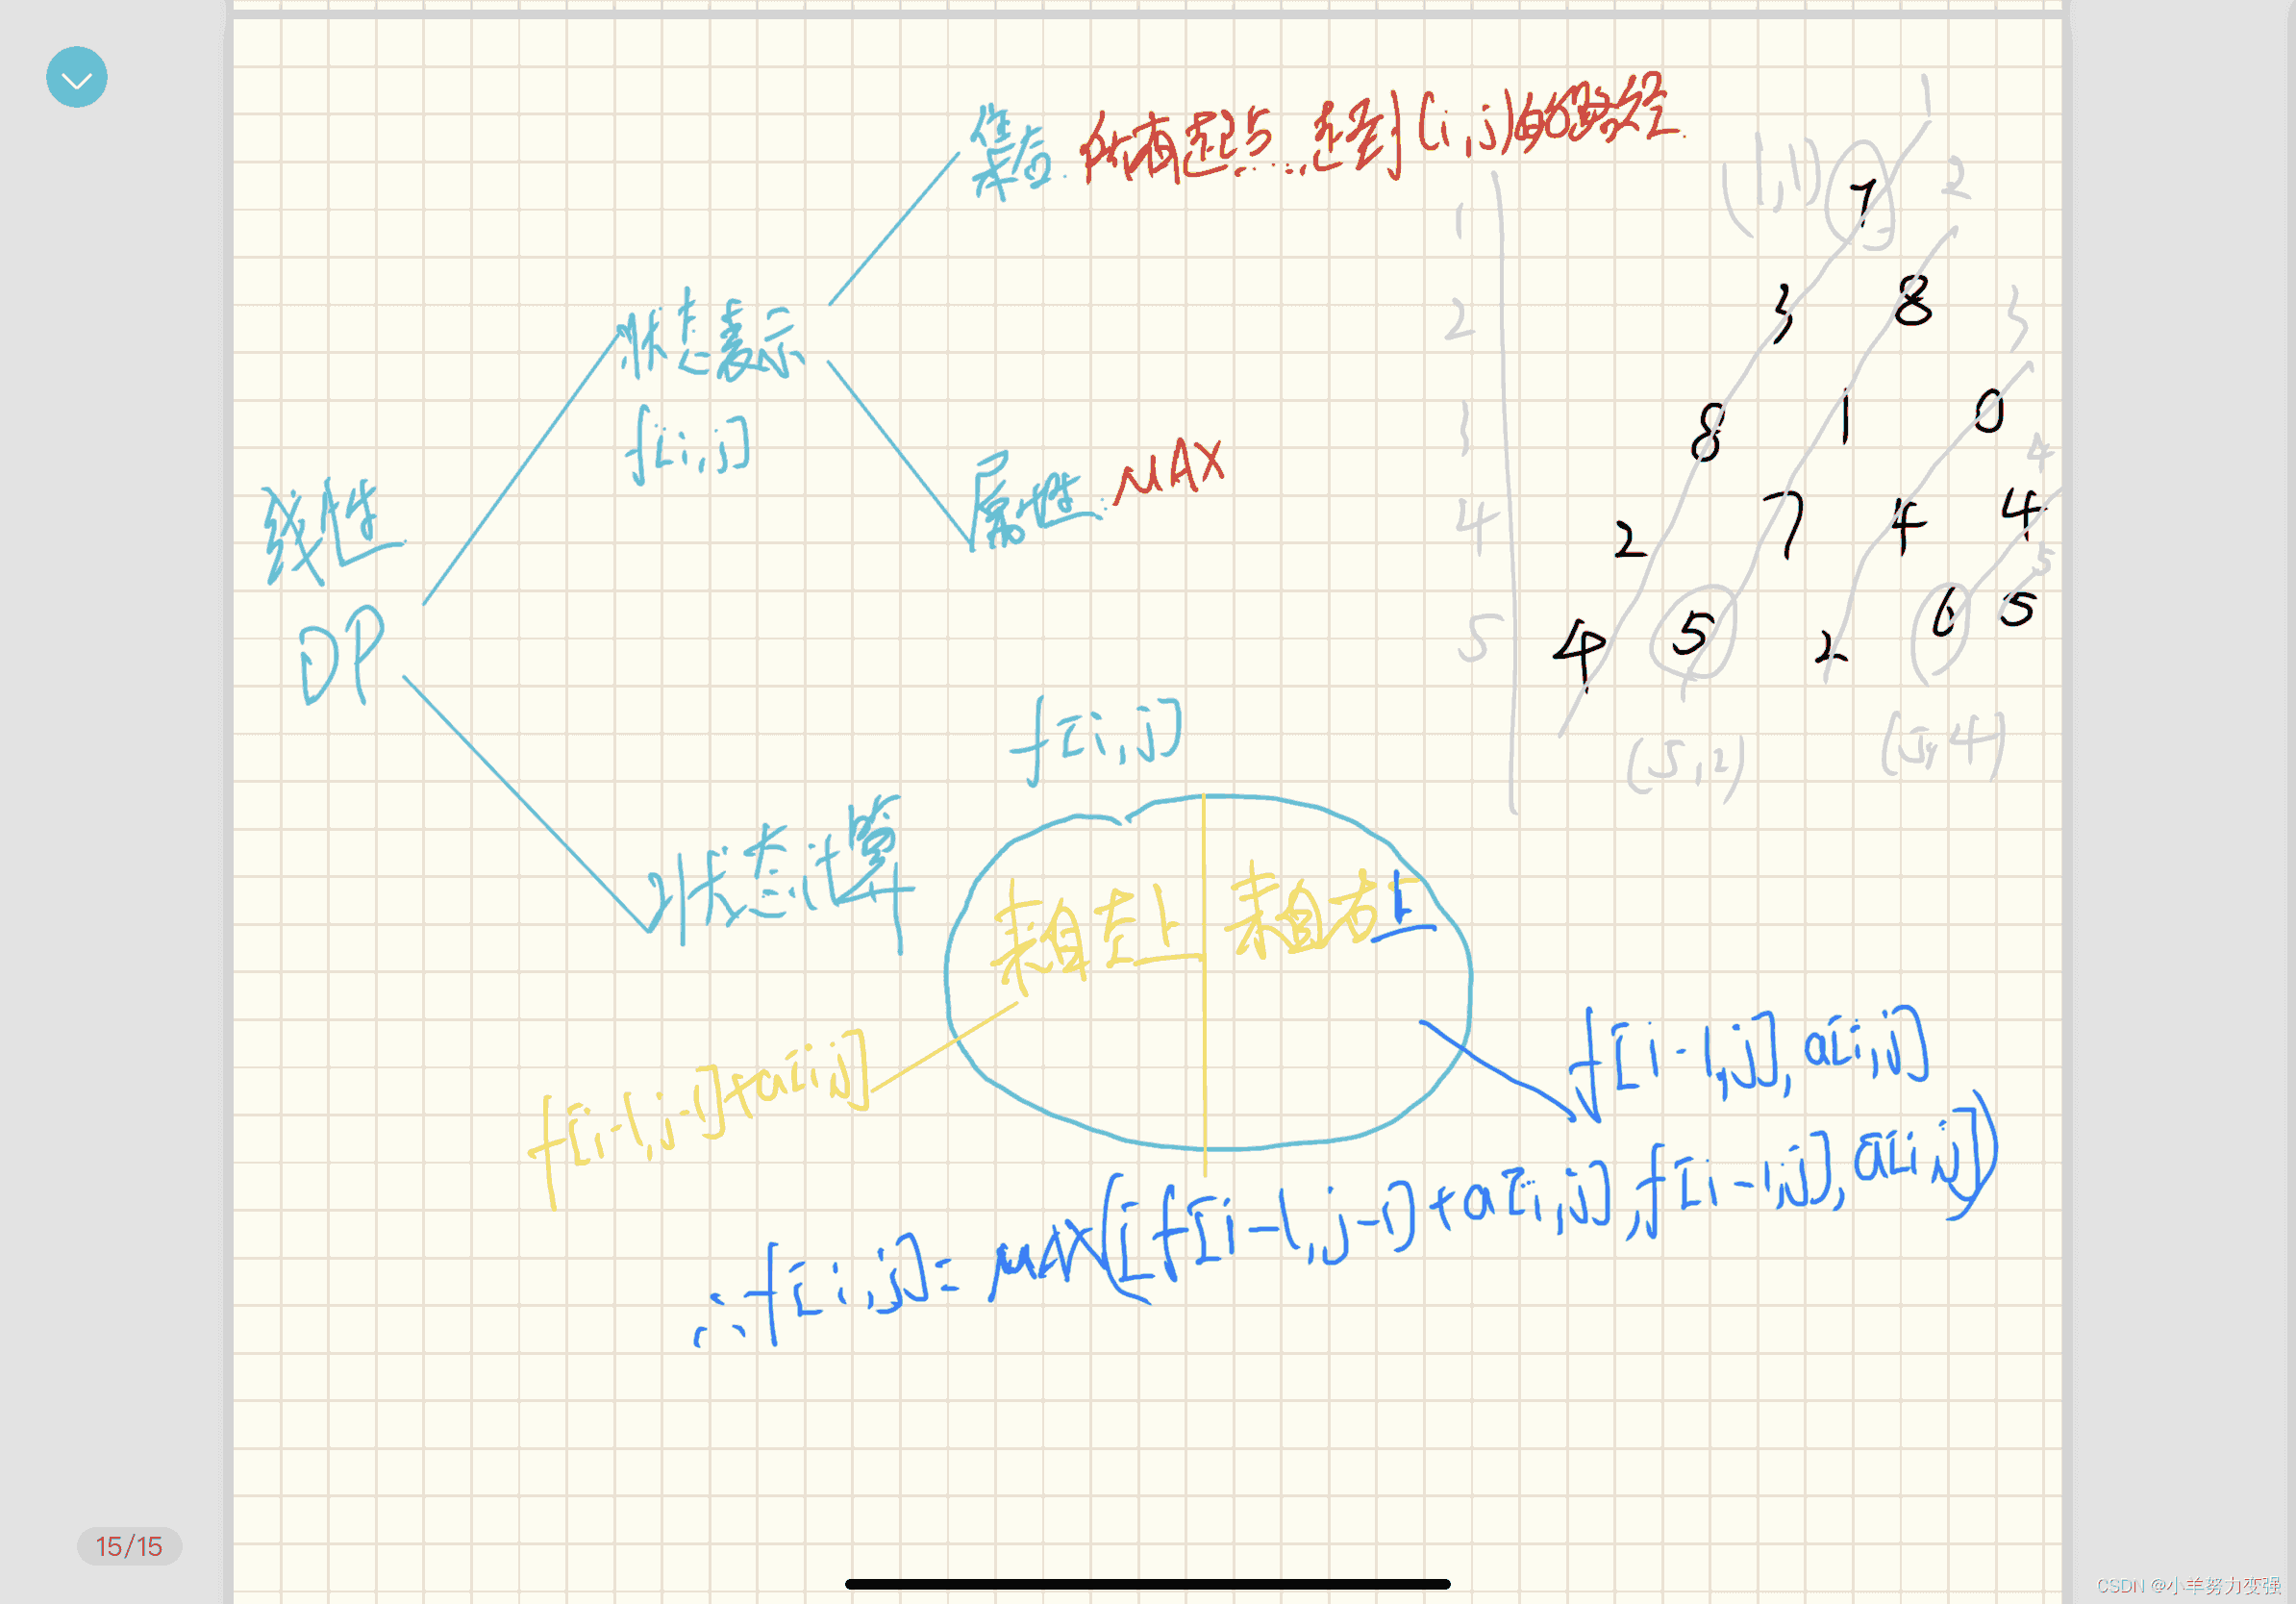 集合: 所有起点, 走到(i,j)的路径.
状态表示
f[i,j]
属性: MAX
线性
DP
状态计算
f[i,j]
来自左上 来自右上
f[i-1,j-1]+a[i,j]
f[i-1,j],a[i,j]
∴f[i,j]=MAX([f[i-1,j-1]+a[i,j],f[i-1,j],a[i,j])
1
1 (1,1) 7 2
2 3 8 3
3 8 1 0 4
4 2 7 4 4 5
5 4 5 2 6 5
(5,2) (5,4)
15/15
CSDN @小羊努力变强